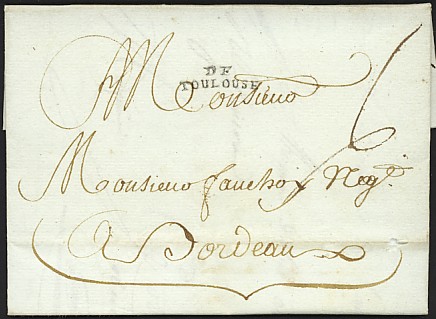 DE
TOULOUSE
Monsieur
Monsieur fauchox Neg.t
A Bordeaux